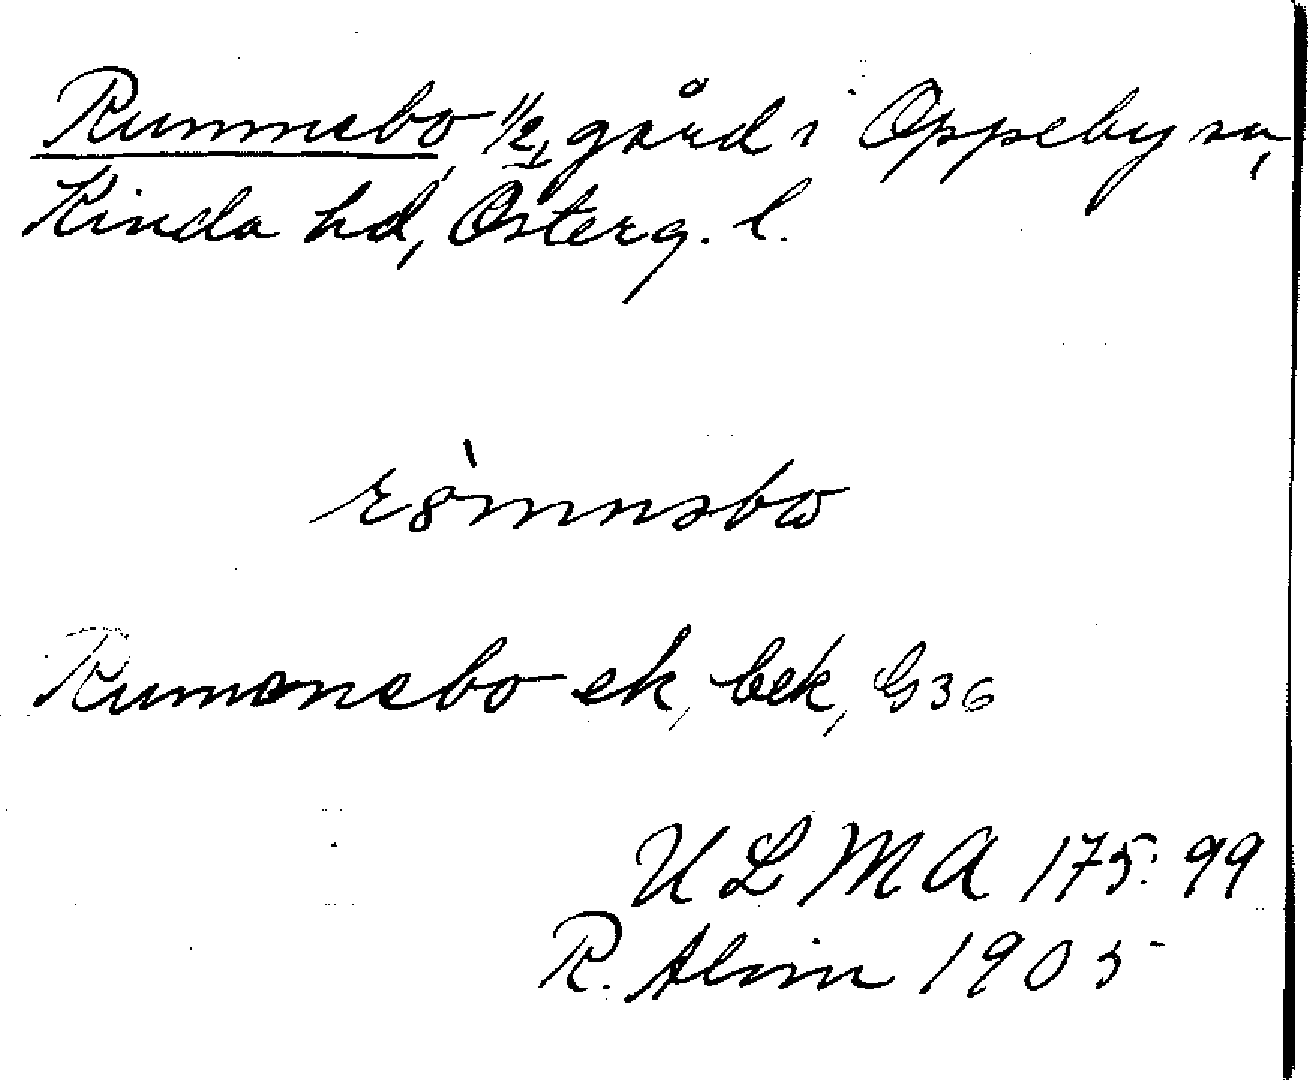 Rumnebo, 1/2, gård i Oppeby sn,
Kinda hd, Österg. l.
Rumenebo ek, bek, G36
ULMA 175:99
R. Alvin 1905